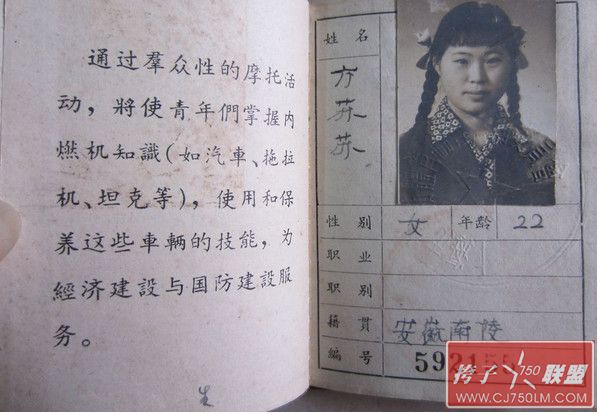 通过羣众性的摩托活
动，將使青年們掌握内
燃机知識(如汽車、拖拉
机、坦克等)，使用和保
养这些車輛的技能，为
經济建設与国防建設服
务。
姓名 方苏苏
性别 女 年龄 22
职业
职别
籍貫 安徽南陵
编号
挎子 750 联盟
WWW.CJ750LM.COM